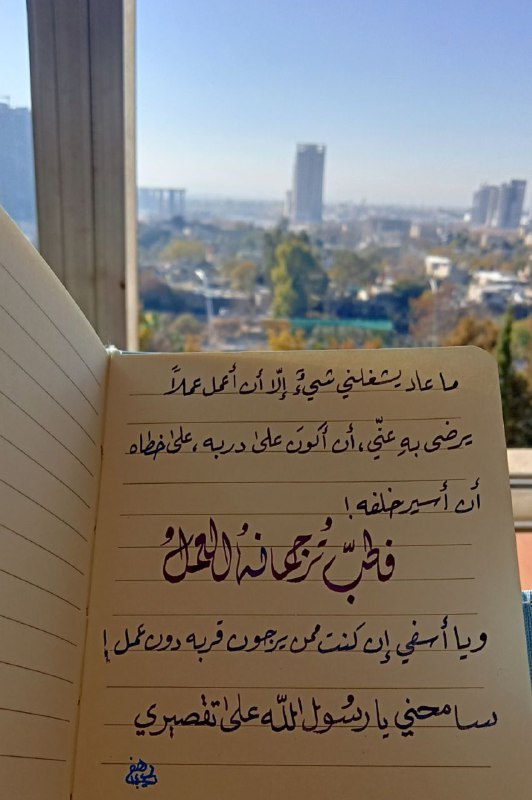 ما عاد يشغلني شيءٌ إلّا أن أعمل عملاً
يرضى بهِ عنّي، أن أكونَ على دربه، على خطاه
أن أسير خلفه!
فالحبّ تُرجمانهُ العملُ
ويا أسفي إن كنت ممن يرجون قربه دون عمل!
سامحني يا رسُول اللّه على تقصيري